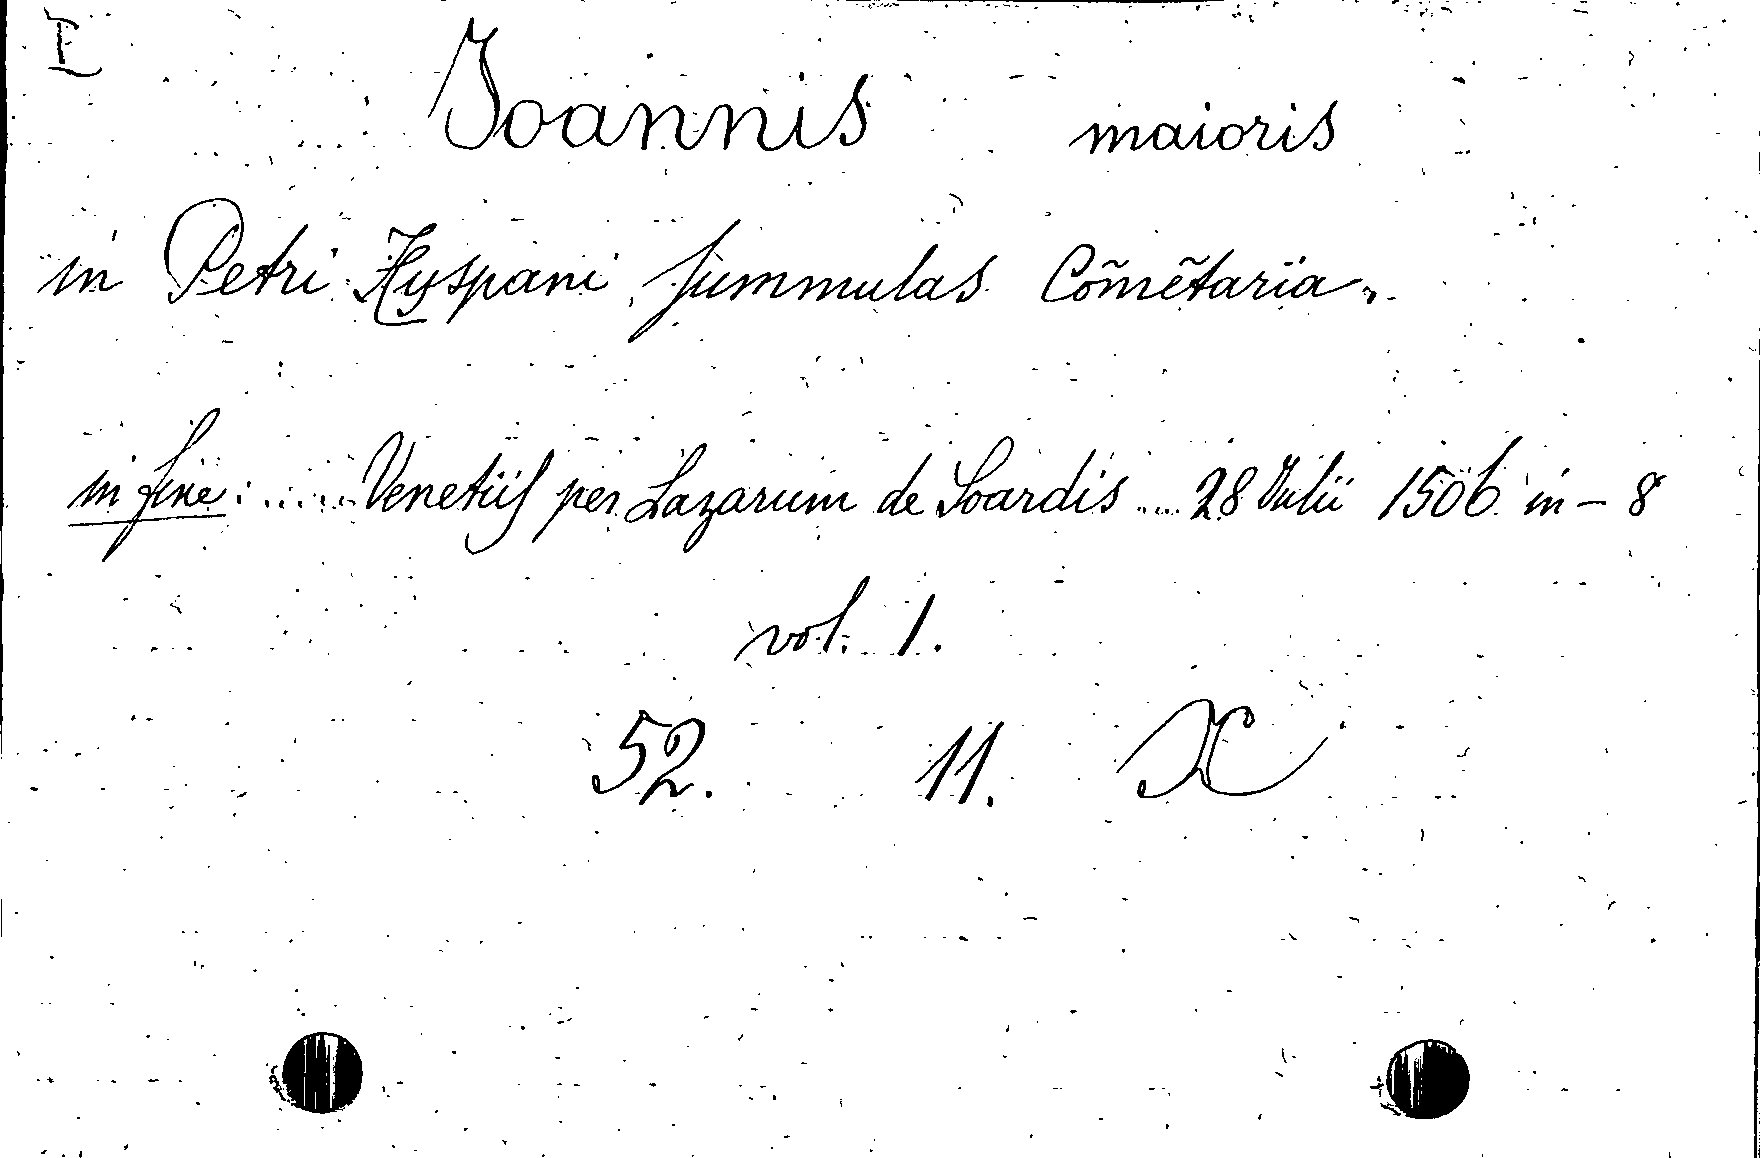 I
Joannis maioris
in Petri Hyspani summulas Com̃etaria.
in fine: ...... Venetiis per Lazarum de Soardis .... 28 Julii 1506 in - 8
vol. 1.
52. 11. X